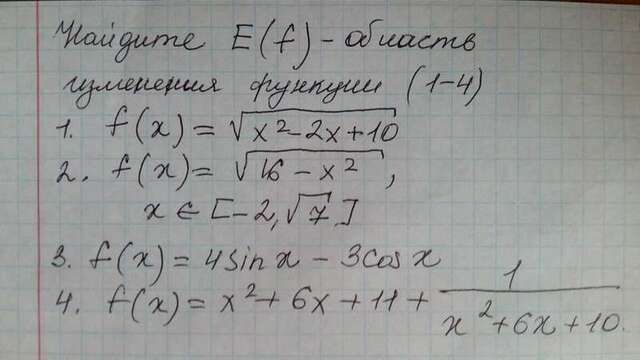 Найдите E(f) – область
изменения функции (1–4)
1. f(x) = √(x² – 2x + 10)
2. f(x) = √(16 – x²) ,
x ∈ [–2, √7]
3. f(x) = 4sin x – 3cos x
4. f(x) = x² + 6x + 11 + 1/(x² + 6x + 10).